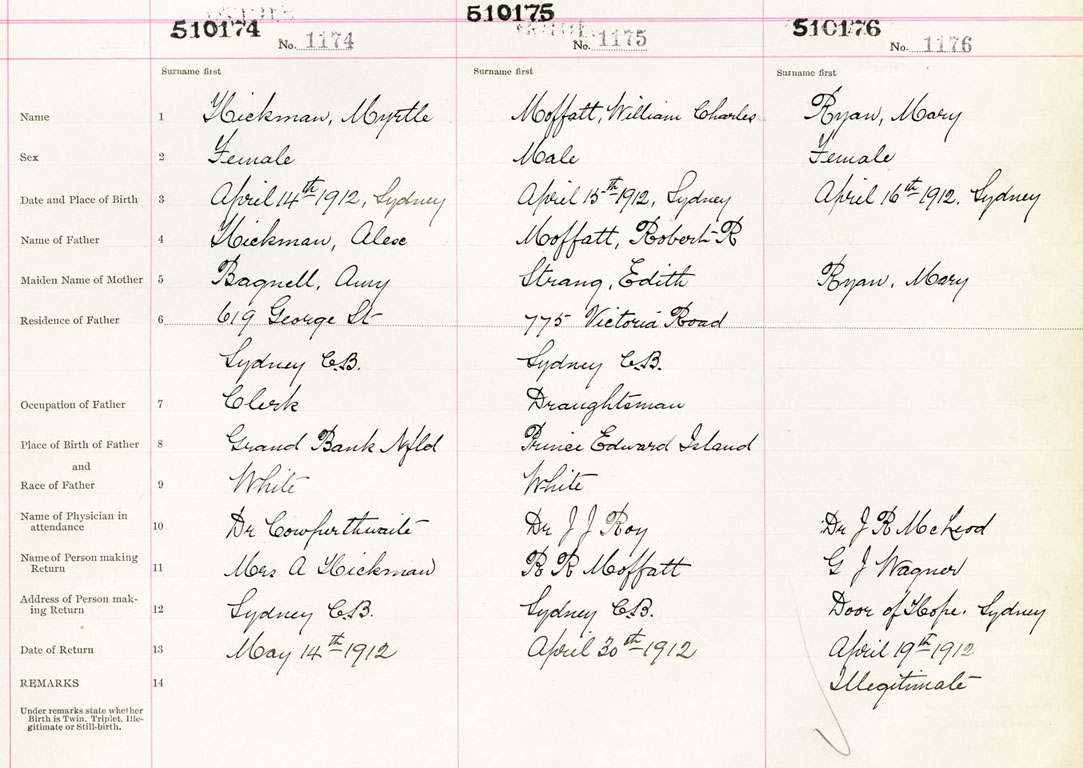 510174 510175 510176
No. 1174 No. 1175 No. 1176
Surname first Surname first Surname first
Name 1 Hickman, Myrtle Moffatt, William Charles Ryan, Mary
Sex 2 Female Male Female
Date and Place of Birth 3 April 14th 1912, Sydney April 15th 1912, Sydney April 16th 1912. Sydney
Name of Father 4 Hickman, Alex Moffatt, Robert R
Maiden Name of Mother 5 Bagnell, Amy Strang, Edith Ryan, Mary
Residence of Father 6 619 George St 775 Victoria Road
Sydney C.B. Sydney C.B.
Occupation of Father 7 Clerk Draughtsman
Place of Birth of Father 8 Grand Bank Nfld Prince Edward Island
and
Race of Father 9 White White
Name of Physician in
attendance 10 Dr Cowperthwaite Dr J J Roy Dr J R McLeod
Name of Person making
Return 11 Mrs A Hickman R R Moffatt G J Wagner
Address of Person mak-
ing Return 12 Sydney C.B. Sydney C.B. Door of Hope. Sydney
Date of Return 13 May 14th 1912 April 30th 1912 April 19th 1912
REMARKS 14 Illegitimate
Under remarks state whether
Birth is Twin, Triplet, Ille-
gitimate or Still-birth.